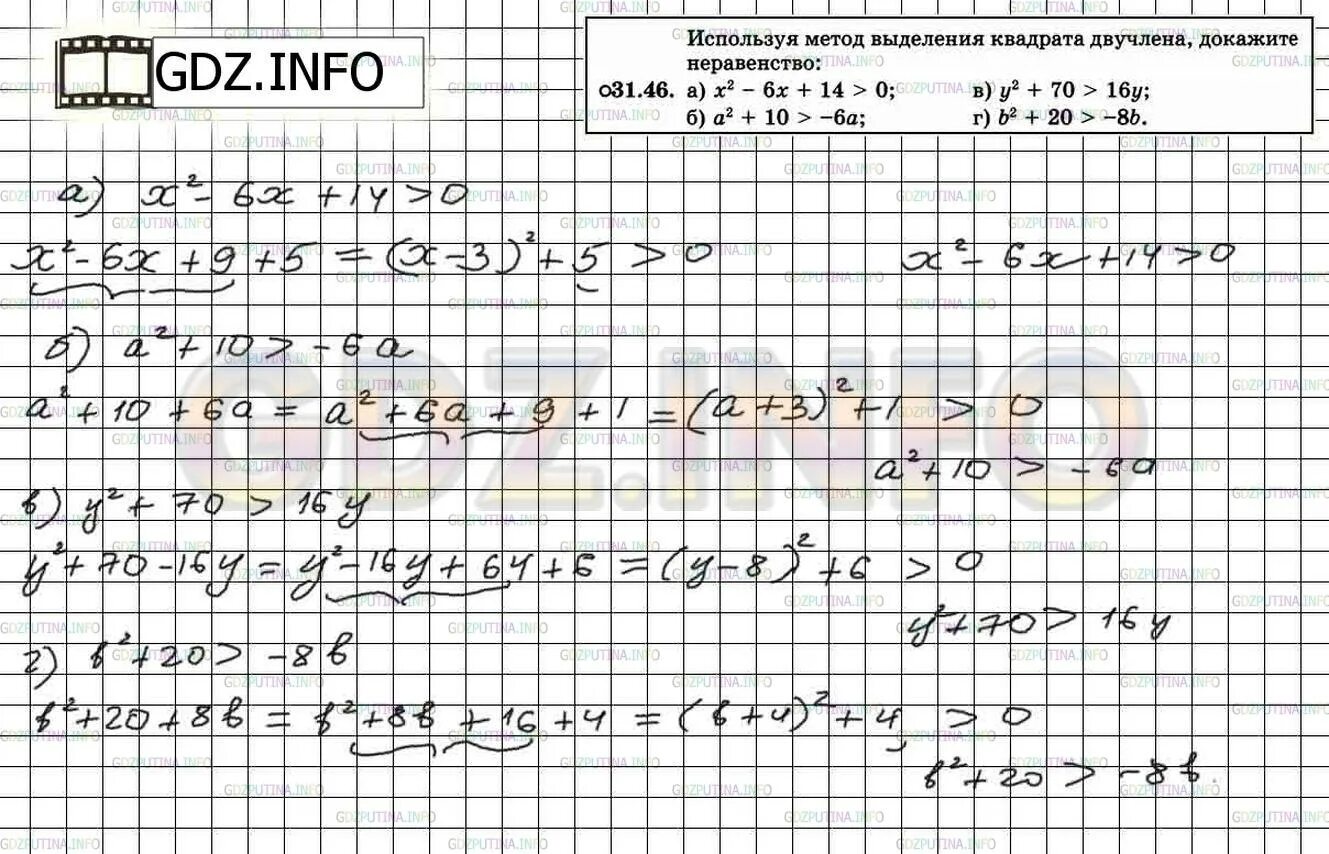 GDZ.INFO
Используя метод выделения квадрата двучлена, докажите
неравенство:
31.46. а) x² − 6x + 14 > 0; в) y² + 70 > 16y;
б) a² + 10 > −6a; г) b² + 20 > −8b.
а) x² − 6x + 14 > 0
x² − 6x + 9 + 5 = (x − 3)² + 5 > 0 x² − 6x + 14 > 0
б) a² + 10 > − 6a
a² + 10 + 6a = a² + 6a + 9 + 1 = (a + 3)² + 1 > 0
a² + 10 > − 6a
в) y² + 70 > 16y
y² + 70 − 16y = y² − 16y + 64 + 6 = (y − 8)² + 6 > 0
y² + 70 > 16y
г) b² + 20 > − 8b
b² + 20 + 8b = b² + 8b + 16 + 4 = (b + 4)² + 4 > 0
b² + 20 > − 8b.
GDZ.INFO
GDZPUTINA.INFO